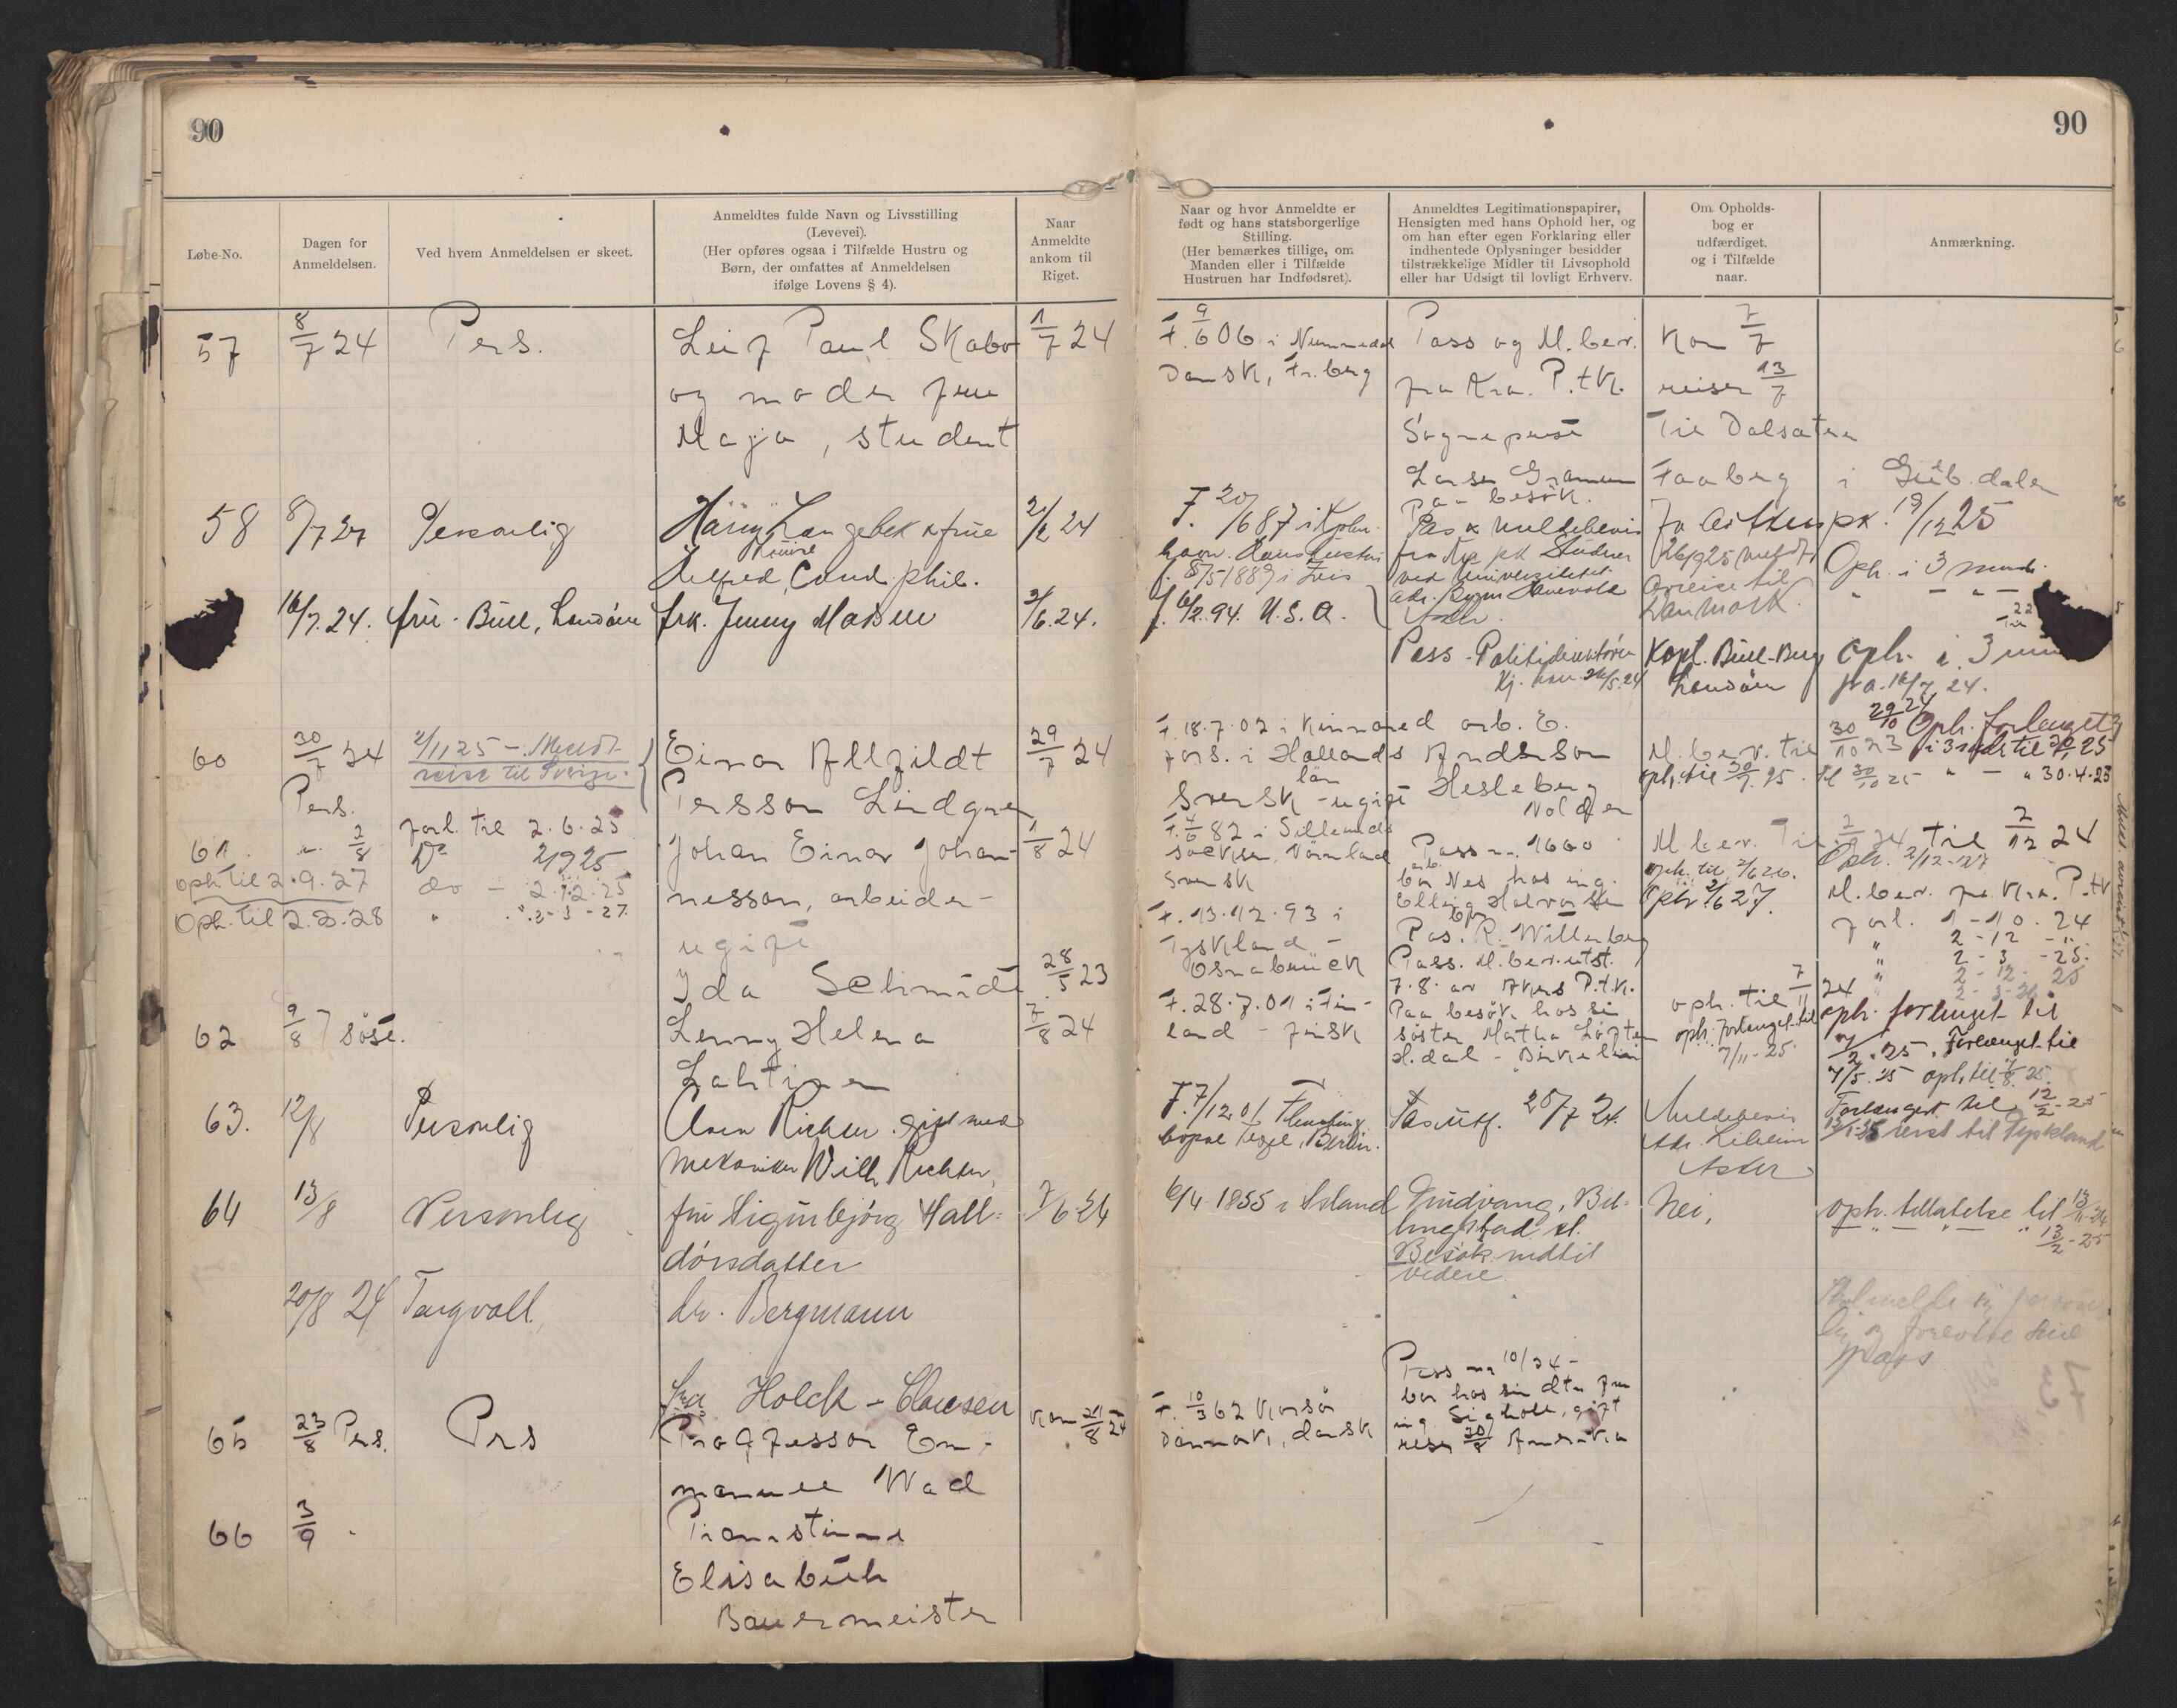 90
90
Løbe-No.
Dagen for
Anmeldelsen.
Ved hvem Anmeldelsen er skeet.
Anmeldtes fulde Navn og Livsstilling
(Levevei).
(Her opføres ogsaa i Tilfælde Hustru og
Børn, der omfattes af Anmeldelsen
ifølge Lovens § 4).
Naar
Anmeldte
ankom til
Riget.
Naar og hvor Anmeldte er
født og hans statsborgerlige
Stilling.
(Her bemærkes tillige, om
Manden eller i Tilfælde
Hustruen har Indfødsret).
Anmeldtes Legitimationspapirer,
Hensigten med hans Ophold her, og
om han efter egen Forklaring eller
indhentede Oplysninger besidder
tilstrækkelige Midler til Livsophold
eller har Udsigt til lovligt Erhverv.
Om Opholds-
bog er
udfærdiget.
og i Tilfælde
naar.
Anmærkning.
57
8/7 24
Pers.
Leif Paul Skabo
og moder frue
Maja, student
1/7 24
F. 9/6 06 i Nummedal
Dansk, Fr.berg
Pass og M.bev.
fra Kra. P.tk.
Sogneprest
Larsen Gramen
paa besök.
Kom 7/7
reiser 13/7
Til Dalsæter
Faaberg i Gudb.dalen
58
8/7 24
Personlig
Harry Langebek & frue
Louise
Cand. phil.
2/6 24
F. 20/6 87 i Kjøben-
havn. Hans hustru
f. 8/5 1889 i
Pas & meldebevis
ved Universitetet
26/9 25 meldt
avreise til
Danmark.
19/12 25
Oph. i 3 mnd.
16/7. 24.
fru Bull, Landöen
frk. Jenny Madsen
2/6. 24.
f. 6/2. 94. U.S.A.
Asker.
Pass - Politidirektören
Kj. havn 26/5. 24
Kapt. Bull-Berg
Landöen
Oph. i 3
fra 16/7 24.
60
30/7 24
Pers.
2/11 25 - Meldt
reise til Sverige.
Einar Allfildt
Persson Lindgren
29/7 24
F. 18.7.02 i Kinnared
fors. i Hallands
län
Svensk - ugift
arb. E.
Anderson
Hesleberg
Nolder
M.bev. til 30/10 23
oph. til 30/7. 25.
Oph. forlenget
30.4.25
61
2/8
forl. til 2.6.25
Do 2/9 25
do - 2.12.25
" 2-3-27.
oph. til 2.9.27
Oph. til 2.3.28
Johan Einar Johan-
nesson, arbeider -
ugift
1/8 24
F. 4/6 82 i Sillerud
socken, Värmland
Svensk
Pass nr. 1660
bor Nes hos ing.
Elling Halvorsen
M.bev. til 2/ 24 til 2/12 24
oph. til 2/6 26.
Oph. 2/6 27.
Oph. 2/12-27
Ida Schmidt
28/5 23
F. 13.12.93 i
Tyskland -
Osnabrück
Pas. R. Willerberg
Pass. M.bev. utst.
7.8. av Akers P.tk.
M.bev. fra Kra. P.tk
forl. 1-10-24
" 2-12 - "
" 2-3 -25.
" 2-12- 25
62
9/8
söst.
Lenny Helena
Lahtinen
8/8 24
F. 28.7.01 i Fin-
land - finsk
Paa besök hos sin
söster Martha Löften
H.dal -
oph. til 7/11 24
oph. forlenget til
7/11-25.
oph. forlenget til
7/2. 25. forlenget til
7/5. 25 oph. til 7/8. 25.
63.
12/8
Personlig
Clara Richter. gift med
mekaniker Willy Richter,
F. 7/12 01 Flensburg.
bopæl Tegel, Berlin.
Pas utf. 25/7 24.
Meldebevis
Asker
Forlenget til 12/2-25
reist til Tyskland
64
13/8
Personlig
fru Sigurbjörg Hall-
dórsdatter
7/6 24
6/4 1855 i Island
Gudvang, Bil-
lingstad st.
Besök indtil
videre
Nei,
oph. tillatelse til 13/11-24
" " " 13/2-25
20/8 24
Torgvall
dr. Bergmann
fru Holck-Clausen
65
23/8 Pers.
Prs
Professor Em-
manuel Wad
Kom 21/8 24
F. 10/3 62 Korsör
Danmark, dansk
Pass nr 10/34 -
bor hos sin dtr. fru
ing. Sigholt, gift
reiser 30/8 Amerika
66
3/9
Pianistinne
Elisabeth
Bauermeister